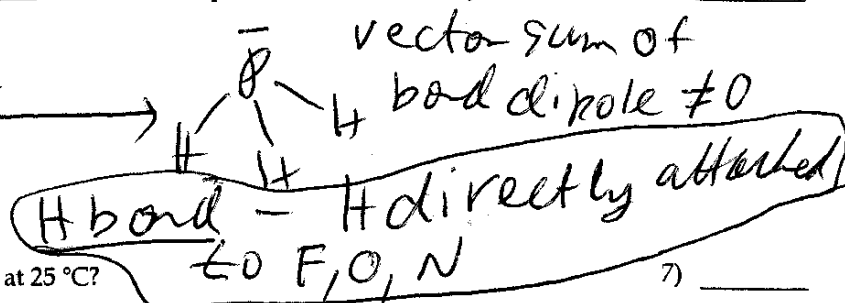 vector sum of
P̄ H bond dipole ≠ 0
H H
H bond - H directly attached
to F, O, N
at 25 °C? 7)